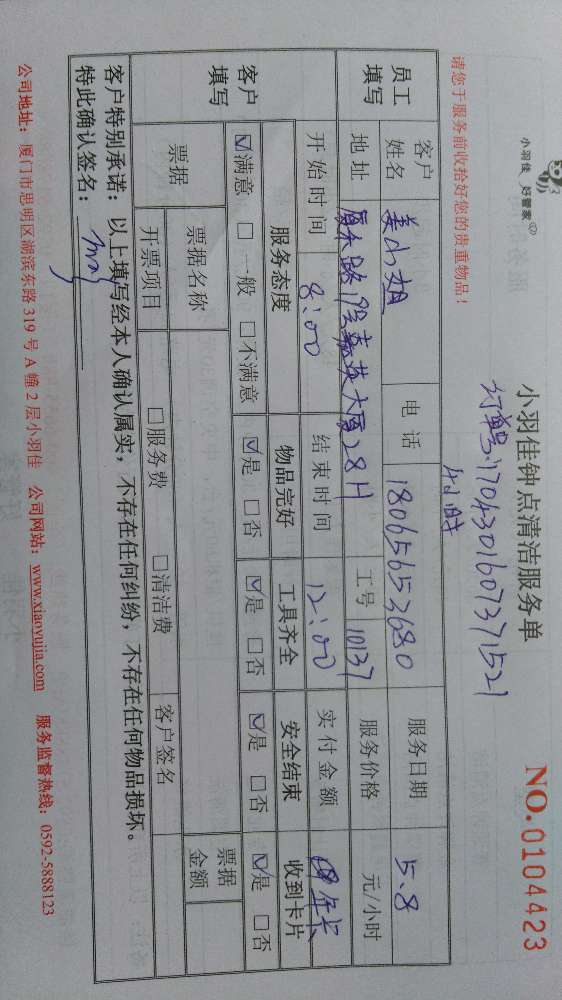 小羽佳 好管家
小羽佳钟点清洁服务单
NO.0104423
订单号:1704301607371521
请您于服务前收拾好您的贵重物品！
4小时
员工填写 客户姓名 姜小姐 电话 18065653680 服务日期 5.8
地址 嘉英大厦28H 工号 10137 服务价格 元/小时
开始时间 8:00 结束时间 12:00 实付金额 年卡
客户填写 服务态度 物品完好 工具齐全 安全结束 收到卡片
☑满意 □一般 □不满意 ☑是 □否 ☑是 □否 ☑是 □否 ☑是 □否
票据 票据名称 票据金额
开票项目 □服务费 □清洁费 客户签名
客户特别承诺：以上填写经本人确认属实，不存在任何纠纷，不存在任何物品损坏。
特此确认签名：
公司地址：厦门市思明区湖滨东路319号A幢2层小羽佳 公司网站：www.xiaoyujia.com 服务监督热线：0592-5888123